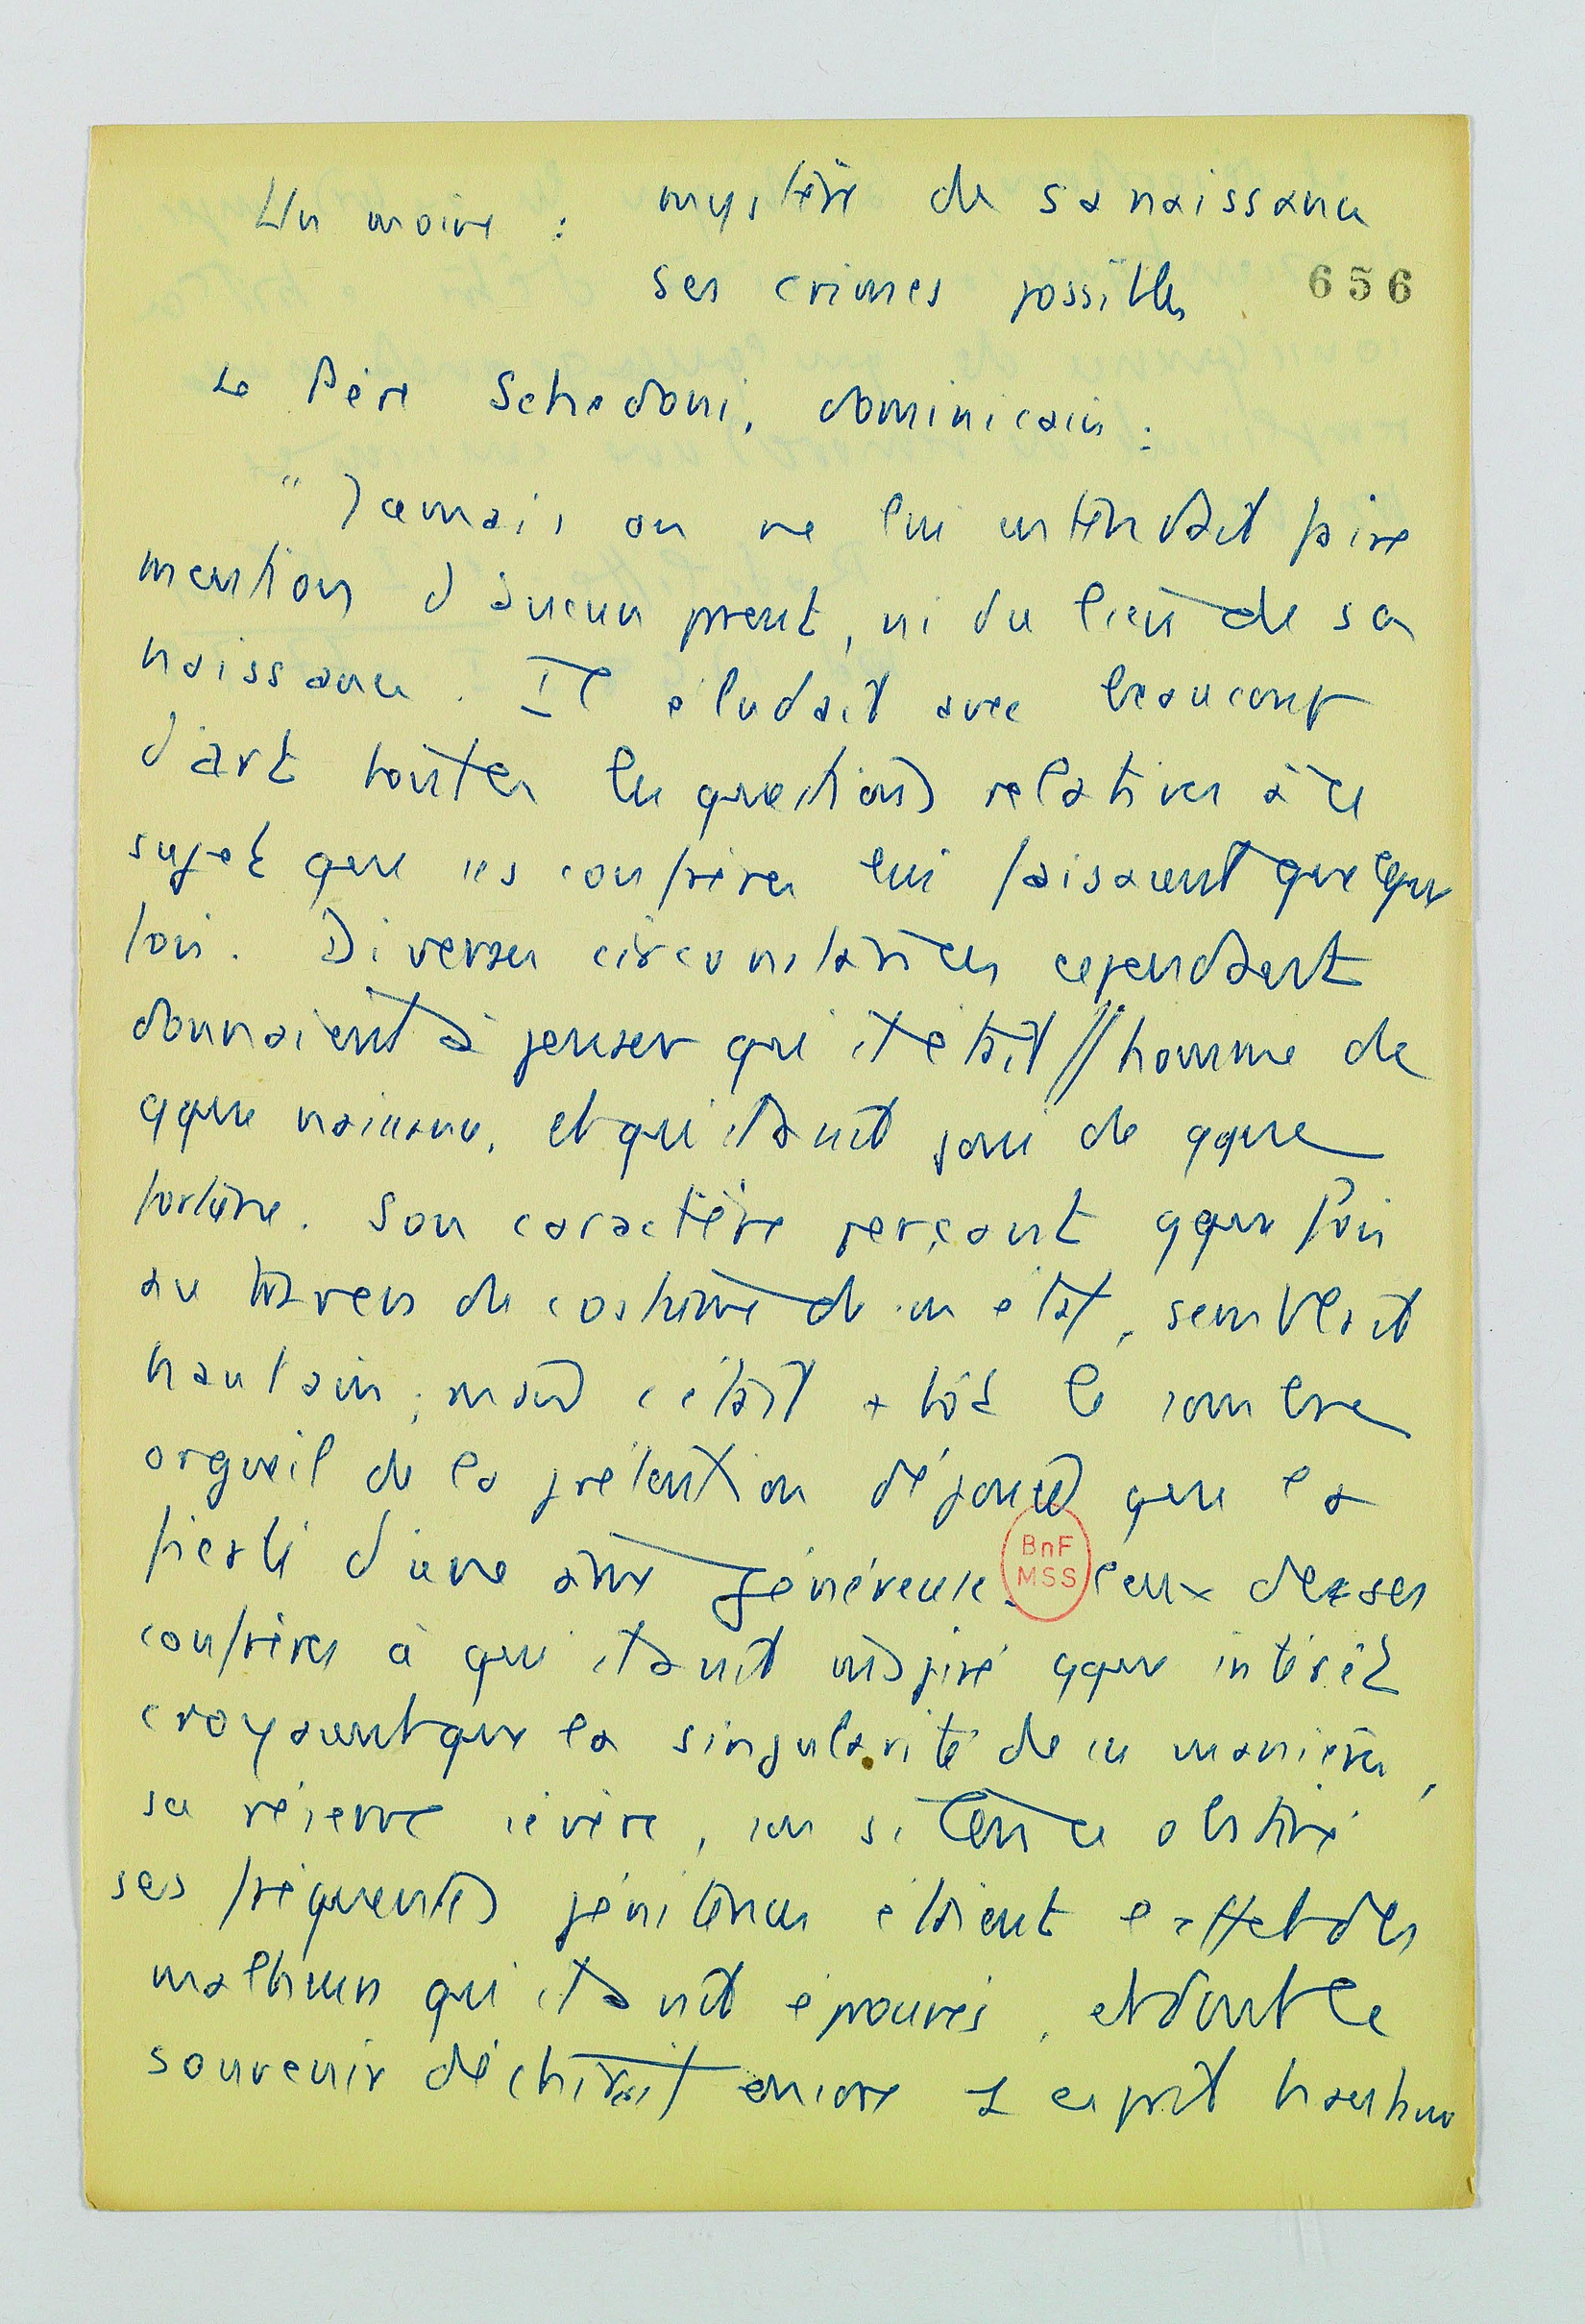 Un moine : mystère de sa naissance
ses crimes possibles
656
Le Père Schedoni, dominicain :
" Jamais on ne lui entendait faire
mention d'aucun parent, ni du lieu de sa
naissance. Il éludait avec beaucoup
d'art toutes les questions relatives à ce
sujet que ses confrères lui faisaient quelque
fois. Diverses circonstances cependant
donnaient à penser qu'il était // homme de
qque naissance, et qu'il avait joui de qque
fortune. Son caractère perçant qque fois
au travers du costume de son état, semblait
hautain ; mais c'était + tôt le sombre
orgueil de la prétention déjouée que la
fierté d'une âme généreuse. Ceux de ses
BnF
MSS
confrères à qui il avait inspiré qque intérêt
croyaient que la singularité de ses manières,
sa réserve sévère, son silence obstiné
ses fréquentes pénitences étaient l'effet des
malheurs qu'il avait éprouvés, et dont le
souvenir déchirait encore 1 esprit hautain